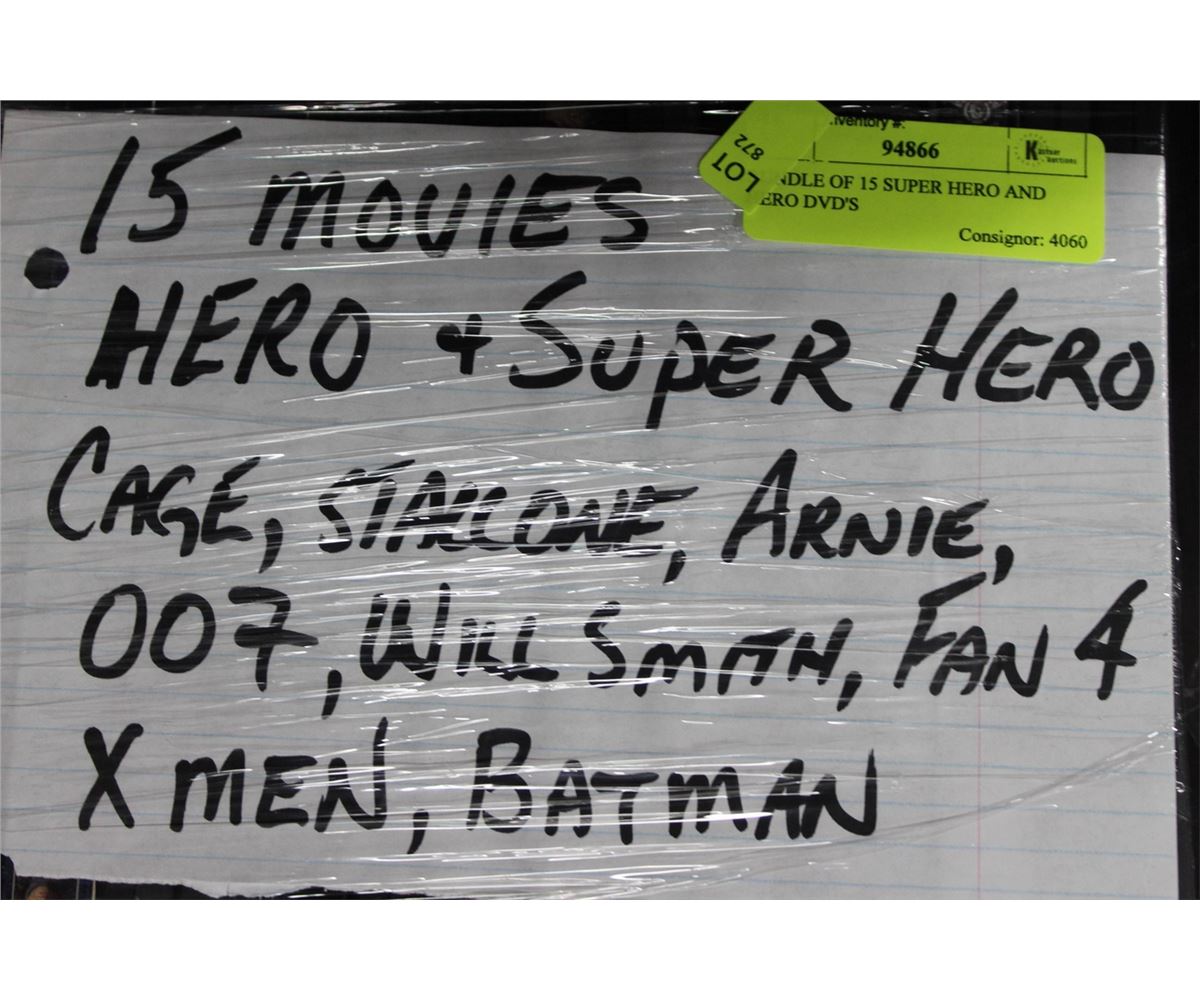 .15 MOVIES
HERO + SUPER HERO
CAGE, STALLONE, ARNIE,
007, WILL SMITH, FAN 4
X MEN, BATMAN
LOT
872
94866
OF 15 SUPER HERO AND
DVD'S
Consignor: 4060